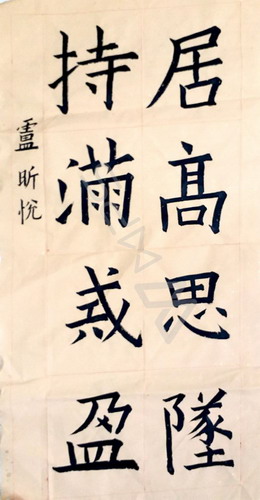 居高思墜
持滿戒盈
盧昕悅